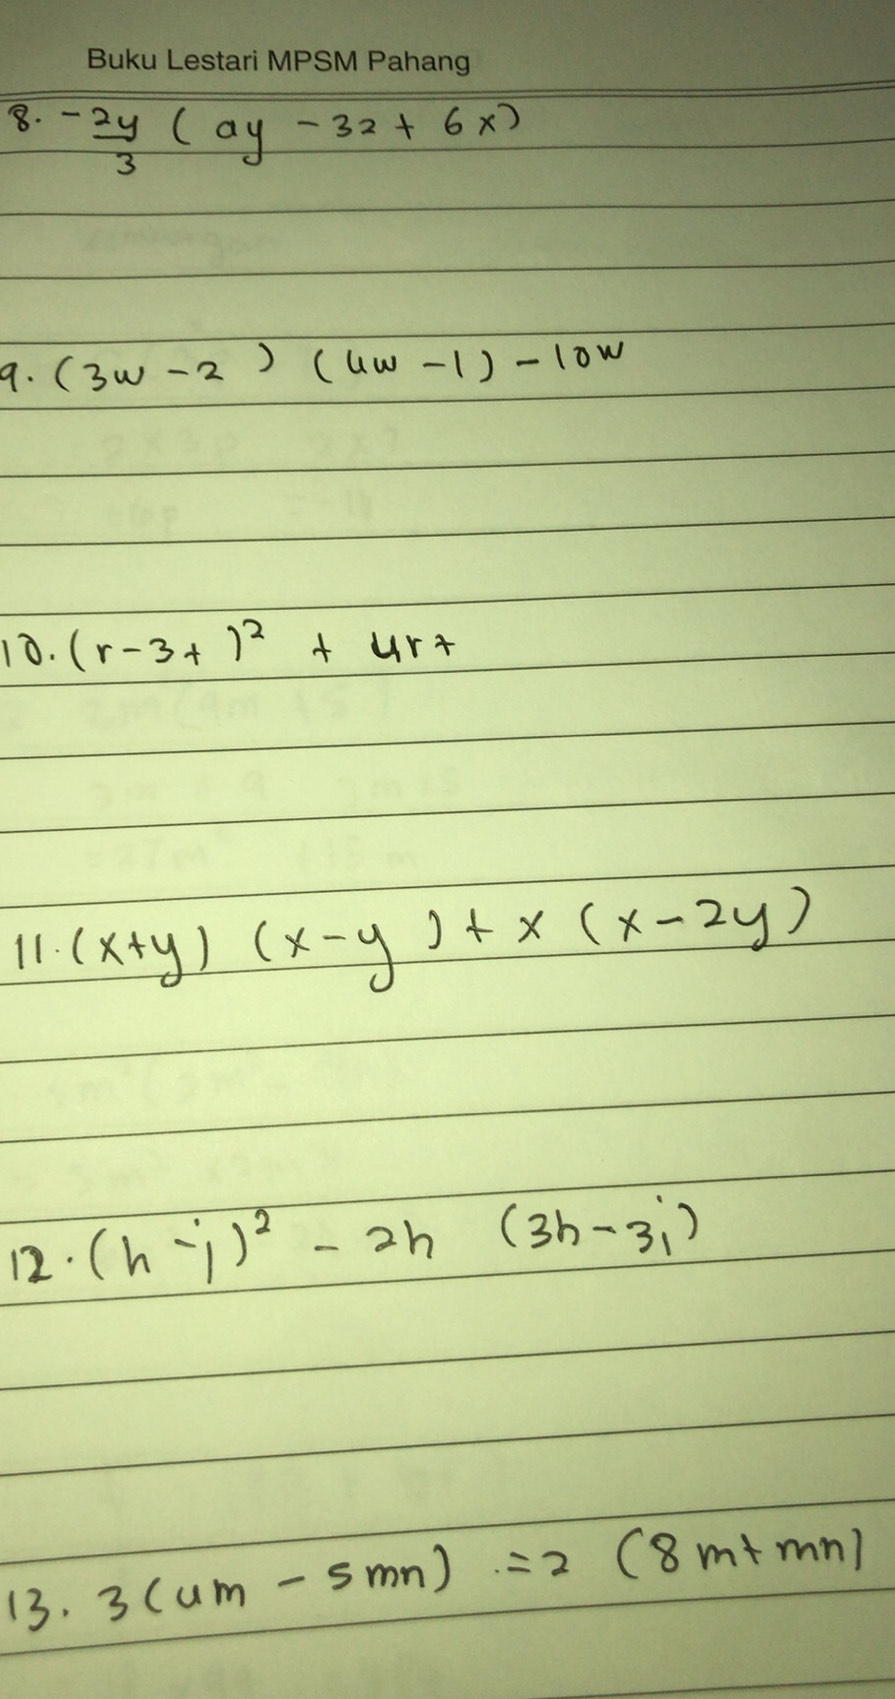 Buku Lestari MPSM Pahang
8. -2y/3 (ay - 3z + 6x)
9. (3w - 2) (4w - 1) - 10w
10. (r - 3t)² + 4rt
11. (x+y) (x-y) + x (x-2y)
12. (h - j)² - 2h (3h - 3j)
13. 3(4m - 5mn) .= 2 (8m + mn)